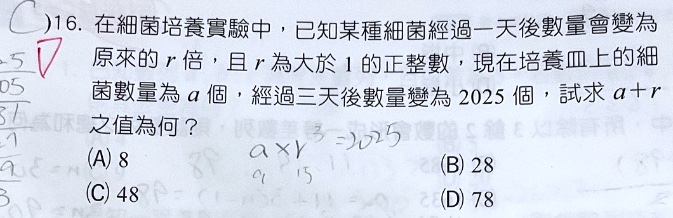 C )16. 在細菌培養實驗中，已知某種細菌經過一天後數量會變為
原來的 r 倍，且 r 為大於 1 的正整數，現在培養皿上的細
菌數量為 a 個，經過三天後數量變為 2025 個，試求 a＋r
之值為何？
a×r³=2025
(A) 8
(B) 28
9 15
(C) 48
(D) 78